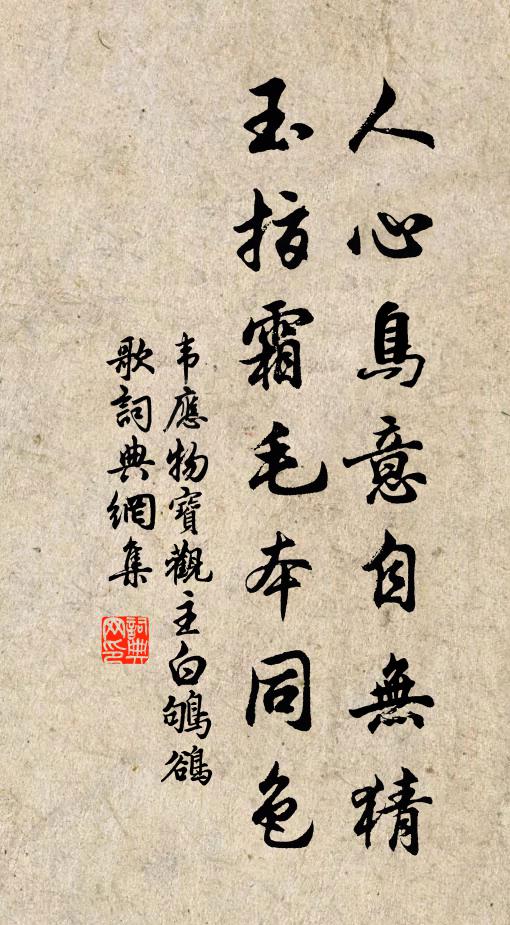 人心鳥意自無猜
玉指霜毛本同色
韦應物寶觀主白鴝鵒
歌詞典網集
詞典網印